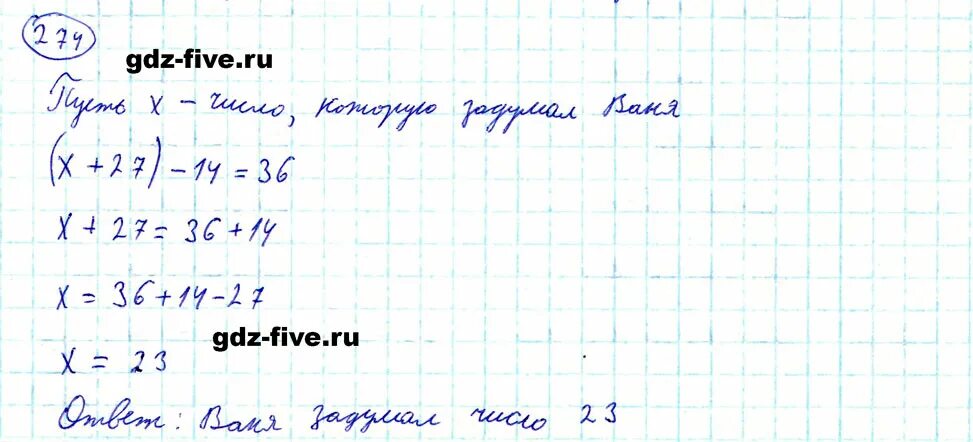 274
gdz-five.ru
Пусть x – число, которую задумал Ваня
(x + 27) – 14 = 36
x + 27 = 36 + 14
x = 36 + 14 – 27
gdz-five.ru
x = 23
Ответ: Ваня задумал число 23